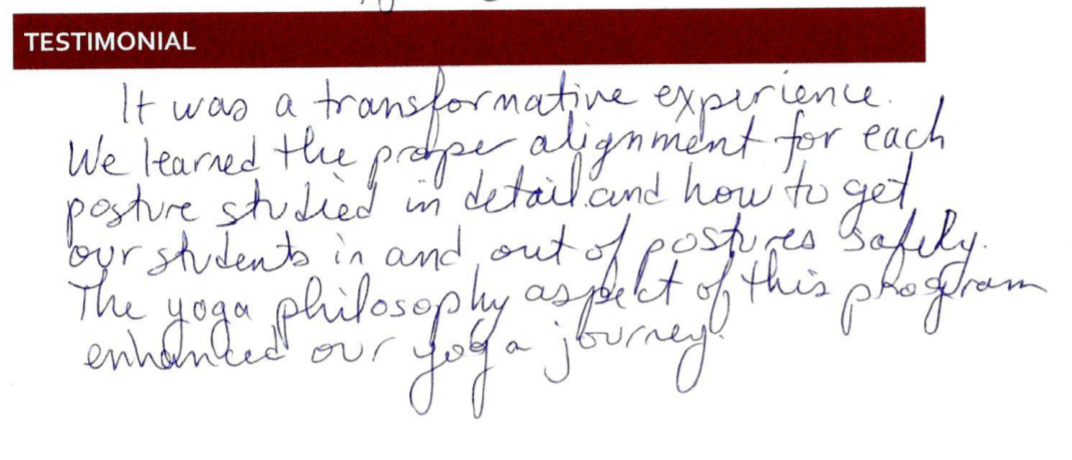 TESTIMONIAL
It was a transformative experience.
We learned the proper alignment for each
posture studied in detail and how to get
our students in and out of postures safely.
The yoga philosophy aspect of this program
enhanced our yoga journey.